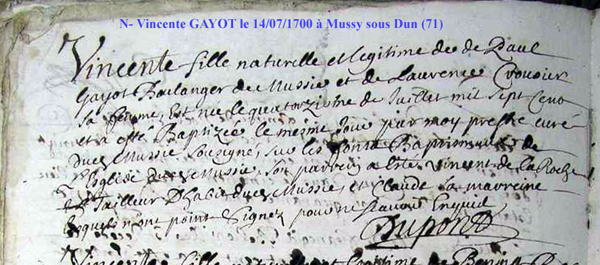 N- Vincente GAYOT le 14/07/1700 à Mussy sous Dun (71)
Vincente fille naturelle et legitime de de Paul
Gayot Boulanger de Mussie et de Laurence Crousier
sa femme, Est nee le quatorziesme de Juillet mil sept Cens
et a esté Baptizée le mesme Jour par moy prestre curé
dud Mussie sousigné, sur les fonts Baptismaux de
l'Eglise dud Mussie, son parrein a este Vincent de la Roche
Tailleur D'habis dud Mussie, et Claude sa marreine
lesquels n'ont point signez pour ne scavoir Enquis
Dupond
Vincente fille Benoist